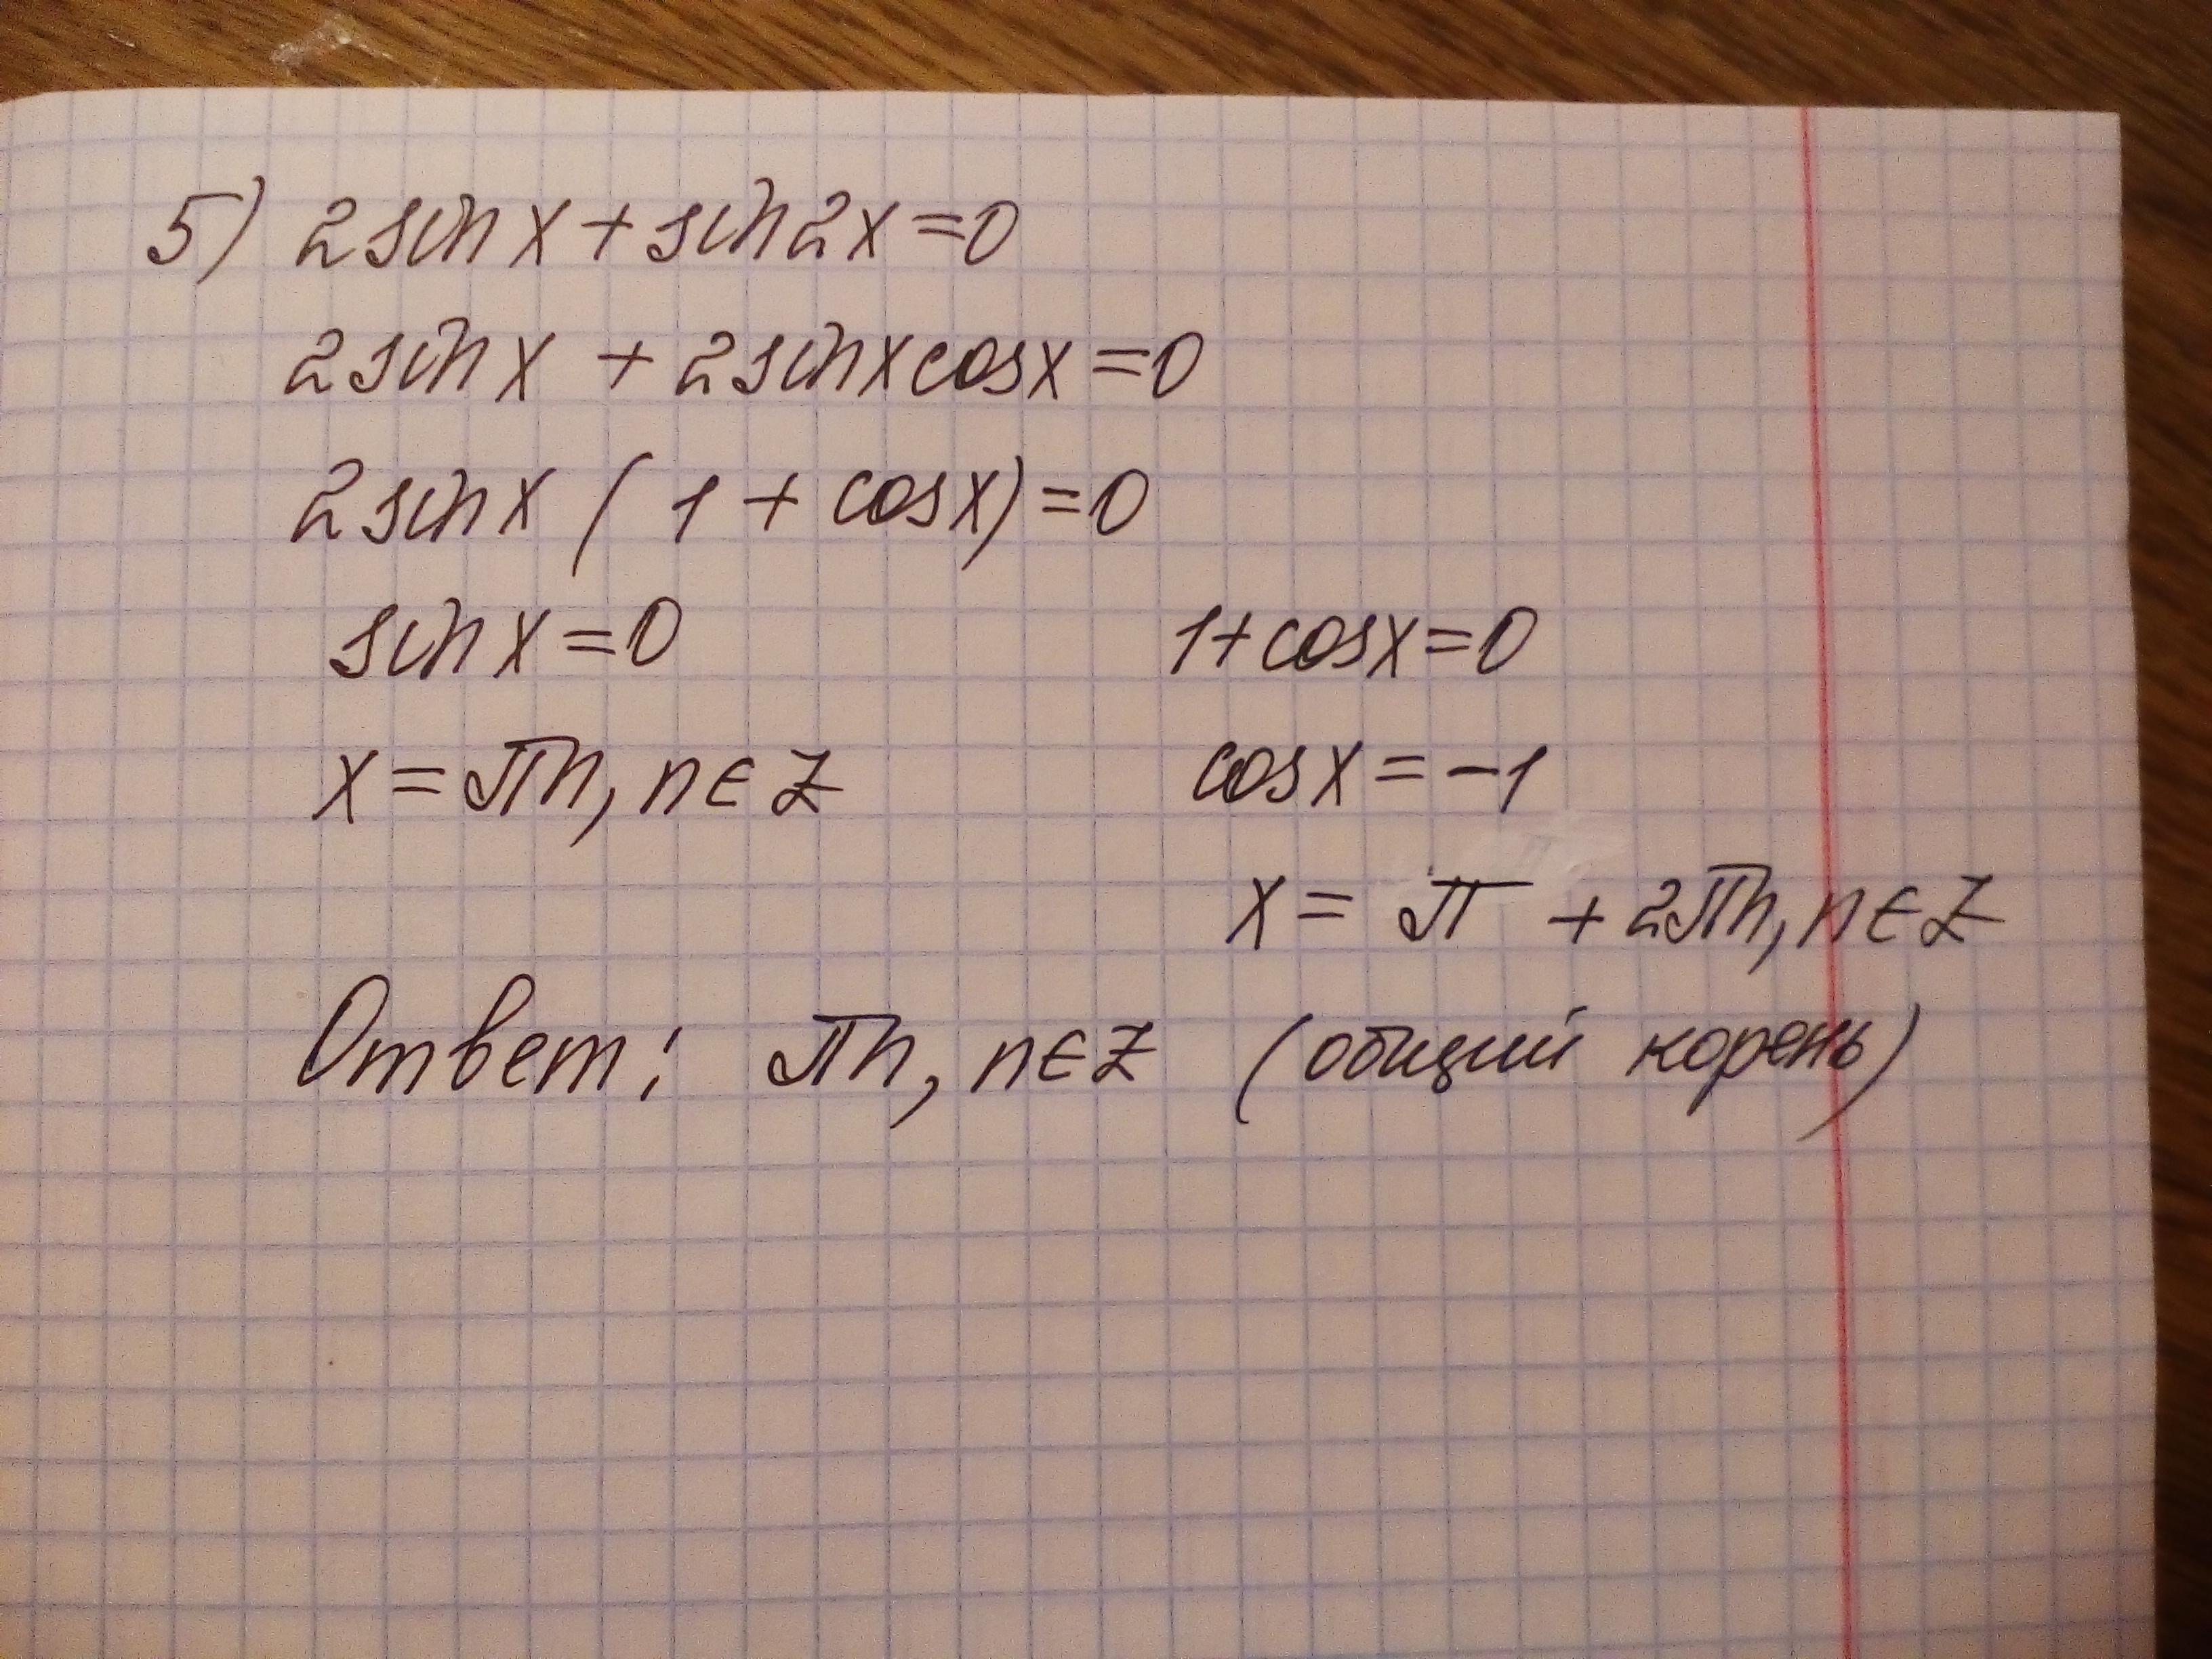 5) 2sin x + sin2x = 0
2sin x + 2sin x cos x = 0
2sin x (1 + cos x) = 0
sin x = 0 1 + cos x = 0
x = πn, n ∈ Z cos x = -1
x = π + 2πn, n ∈ Z
Ответ: πn, n ∈ Z (общий корень)